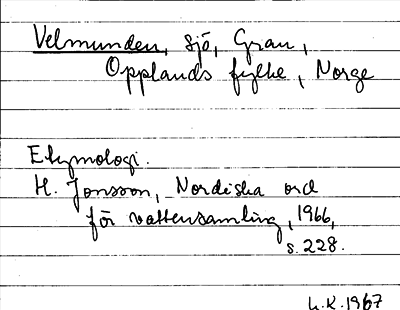 Velmunden, sjö, Gran,
Opplands fylke, Norge
Etymologi.
H. Jonsson, Nordiska ord
för vattensamling, 1966,
s. 228.
L.K. 1967